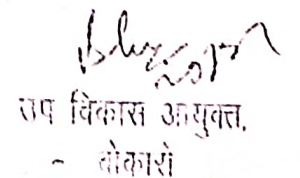 उप विकास आयुक्त,
- बोकारो